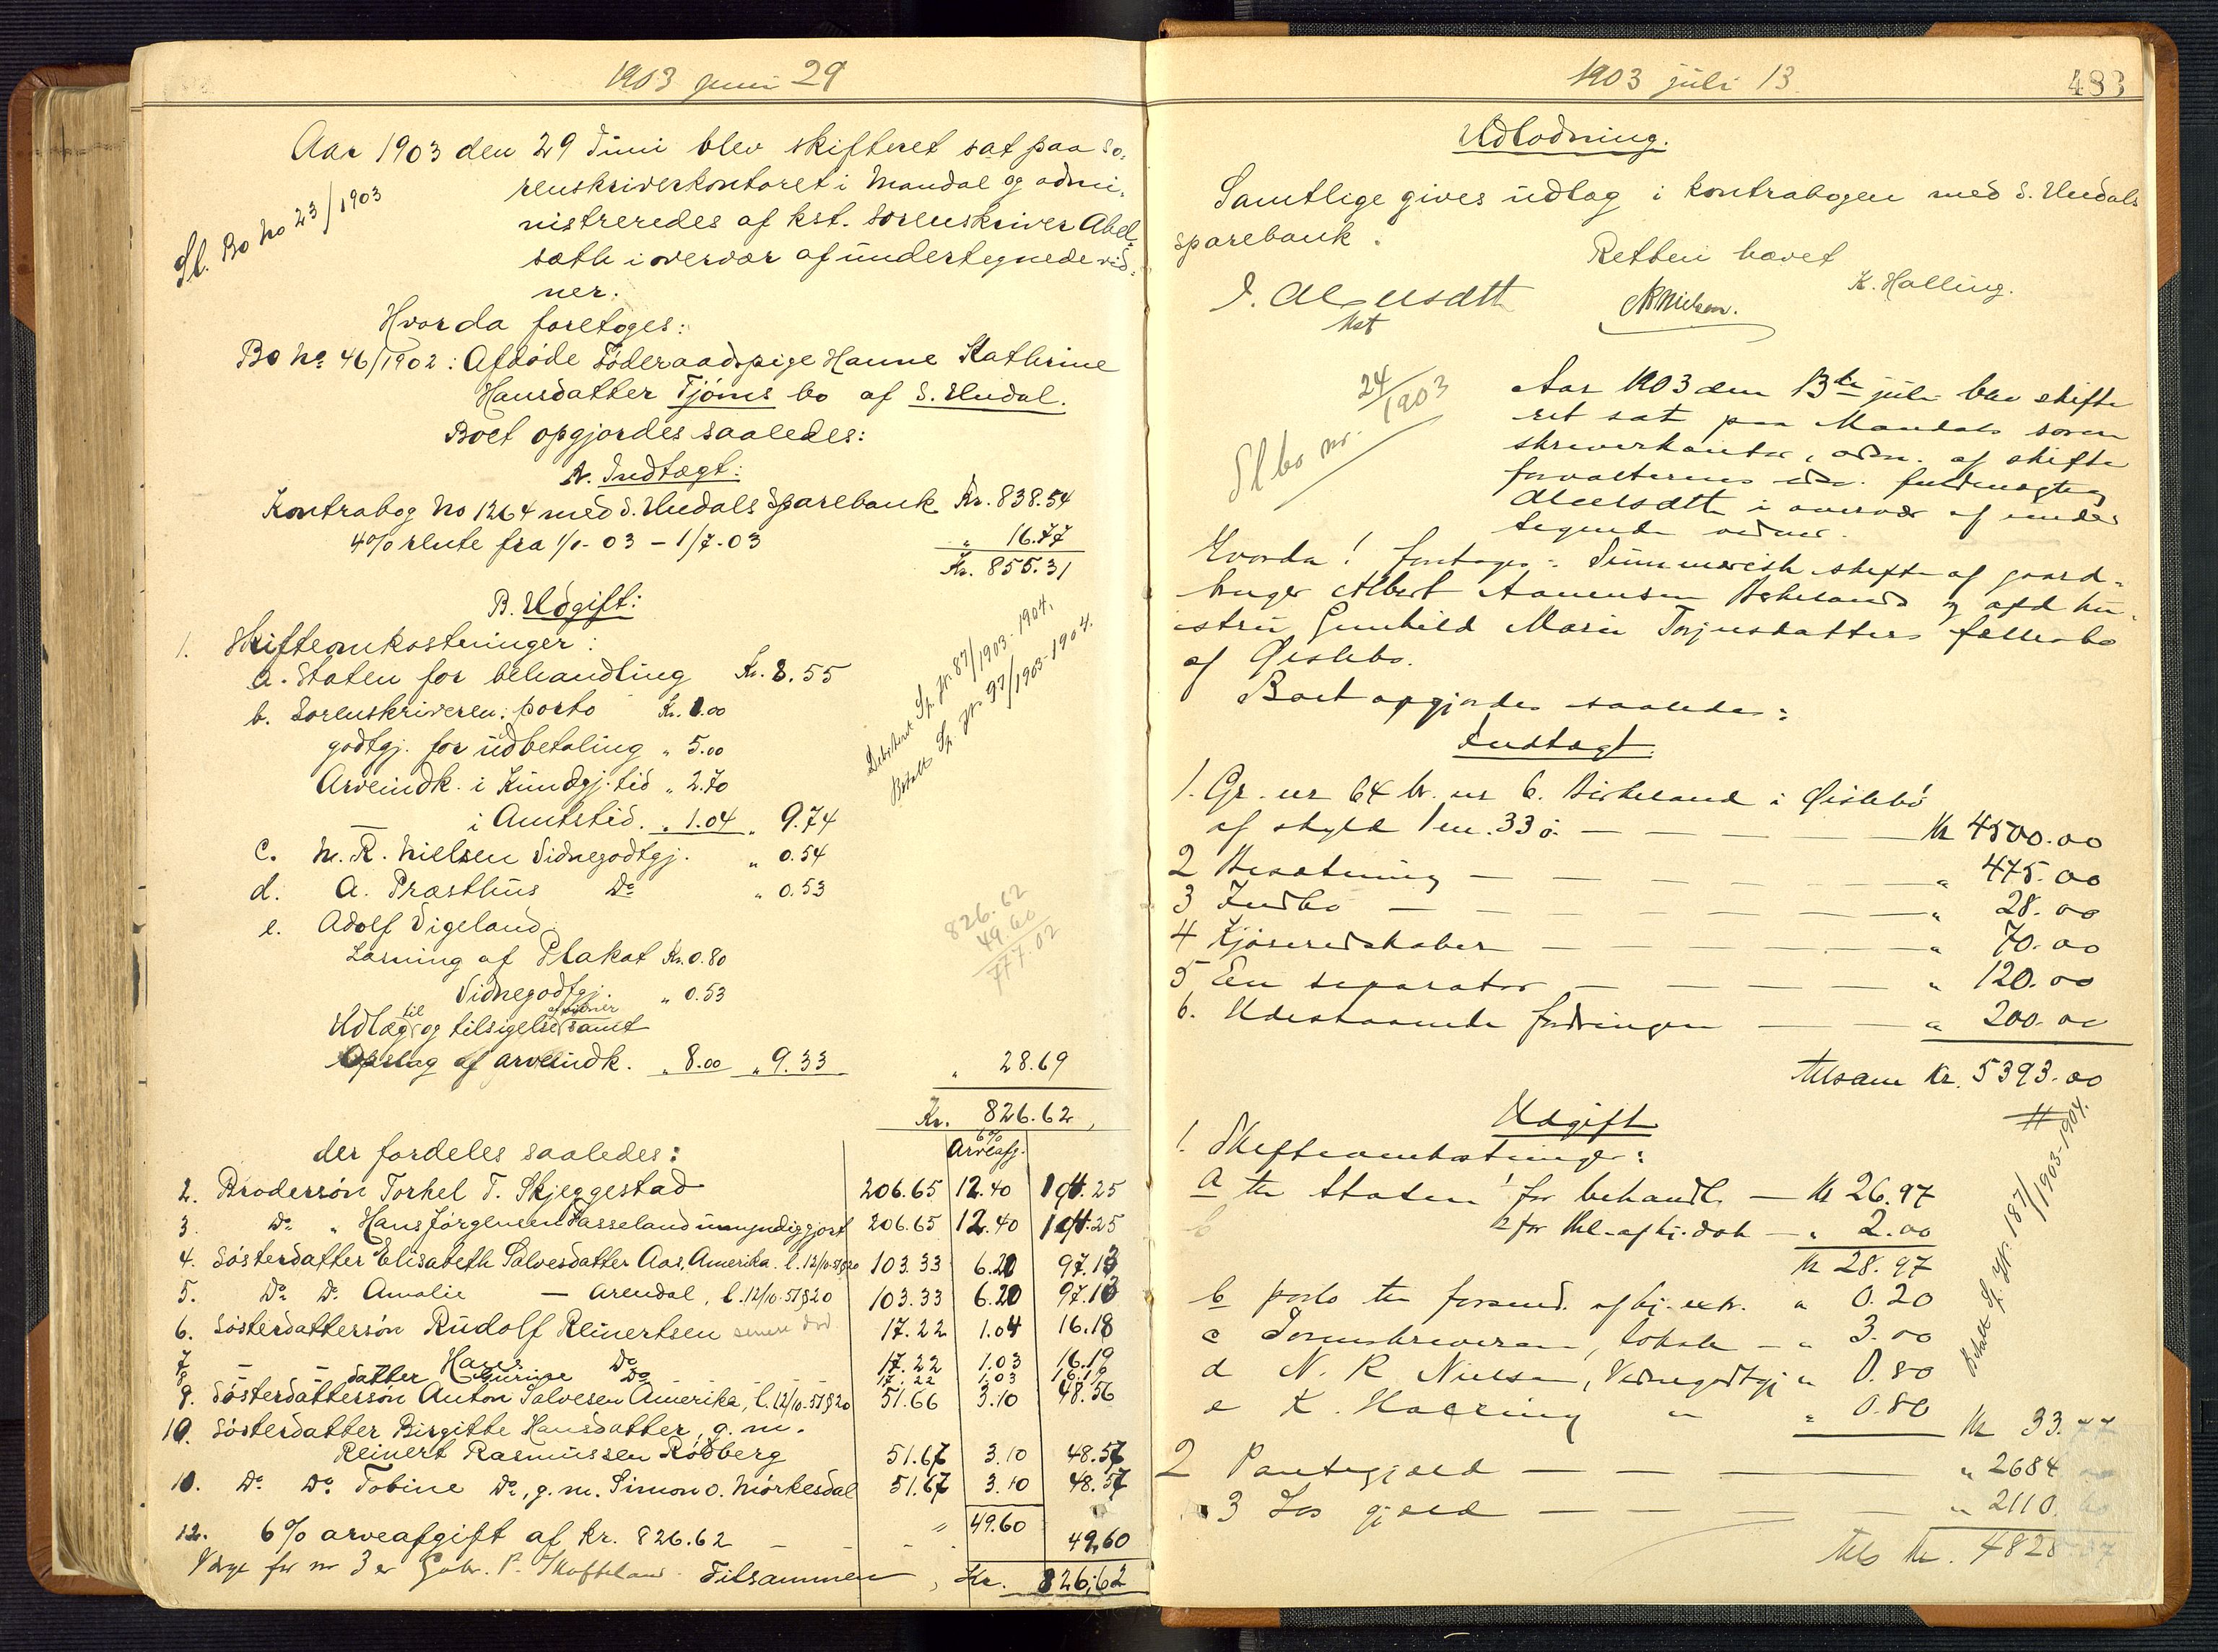 1903 juni 29
Aar 1903 den 29 Juni blev skifteret sat paa so-
renskriverkontoret i Mandal og admi-
nistreredes af kst. sorenskriver Abel-
sæth i overvær af undertegnede vid-
ner.
Sl. Bo No 23/1903
Hvorda foretoges:
Bo No 46/1902: Afdøde Føderaadspige Hanne Kathrine
Hansdatter Tjøms bo af S. Undal.
Boet opgjordes saaledes:
A. Indtægt:
Kontrabog No 1264 med S. Undals Sparebank Kr. 838.54
4% rente fra 1/1-03 - 1/7-03 " 16.77
Kr. 855.31
B. Udgift:
1. Skifteomkostninger:
a. Staten for behandling Kr. 8.55
b. Sorenskriveren: porto Kr. 1.00
godtgj. for udbetaling " 5.00
Arveindk. i Kundgj. tid " 2.70
— i Amtstid. " 1.04 " 9.74
c. N. R. Nielsen Vidnegodtgj. " 0.54
d. A. Præsthus Do " 0.53
e. Adolf Vigeland:
Læsning af Plakat Kr. 0.80
Vidnegodtgj. " 0.53
Udlæg til og tilsigelse af vidner samt
Opslag af arveindk. " 8.00 " 9.33 " 28.69
Debiteret Sp. Jr. 87/1903-1904.
Betalt Sp. Jr. 97/1903-1904.
826.62
49.60
777.02
Kr. 826.62
der fordeles saaledes: 6% Arveafg.
2. Brodersøn Torkel T. Skjeggestad 206.65 12.40 194.25
3. Do " Hans Jørgensen Fasseland umyndiggjort 206.65 12.40 194.25
4. Søsterdatter Elisabeth Salvesdatter Aas, Amerika. l. 12/10-57 §20 103.33 6.20 97.13
5. Do Do Amalie — Arendal, l. 12/10-57 §20 103.33 6.20 97.13
6. Søsterdattersøn Rudolf Reinertsen 17.22 1.04 16.18
7. — — Hans Do 17.22 1.03 16.19
8. datter Gurine Do 17.22 1.03 16.19
9. Søsterdattersøn Anton Salvesen Amerika, l. 12/10-57 §20 51.66 3.10 48.56
10. Søsterdatter Birgitte Hansdatter, g. m.
Reinert Rasmussen Rødberg 51.67 3.10 48.57
10. Do Do Tobine Do, g. m. Simon O. Mørkesdal 51.67 3.10 48.57
49.60
12. 6% arveafgift af kr. 826.62 - - " - . 49.60
Værge for nr 3 er Gabr. P. Skofteland. Tilsammen, Kr. 826.62
1903 juli 13.
483
Udlodning.
Samtlige gives udlæg i kontrabogen med S. Undals
Sparebank.
Retten hævet
Abelsætt
kst
NRNielsen.
K. Halling.
Sl bo nr. 24/1903
Aar 1903 den 13de juli blev skifte
ret sat paa Mandals soren
skriverkontor, adm. af skifte
forvalterens edsv. fuldmægtig
Abelsætt i overvær af under
tegnede vidner.
Hvorda! foretoges: Summarisk skifte af gaard-
bruger Albert Aanensen Birkelands og afd hu-
stru Gunhild Marie Torjusdatters fællesbo
af Øislebø.
Boet opgjordes saaledes:
Indtægt.
1. Gr. nr 64 br. nr 6. Birkeland i Øislebø
af skyld 1 m. 33 ø. — — — — Kr 4500.00
2 Besætning — — — — " 475.00
3 Indbo — — — — — " 28.00
4 Kjøreredskaber — — — — " 70.00
5 En separator — — — — " 120.00
6. Udestaaende fordringer — — " 200.00
tilsam Kr. 5393.00
Udgift
1. Skifteomkostninger:
a til Staten 1 for behandl. — Kr 26.97
2 for tbl. af hj. dok — " 2.00
Kr 28.97
b porto til forsend. af hj. extr. " 0.20
c Sorenskriveren, lokale — " 3.00
d N. R Nielsen, Vidnegodtgj " 0.80
e K. Halling " " 0.80 Kr 33.77
2 Pantegjæld — — — — " 2684
3 Løs gjæld — — — — " 2110.
tils Kr. 4828
Betalt Sp. Jr. 187/1903-1904.